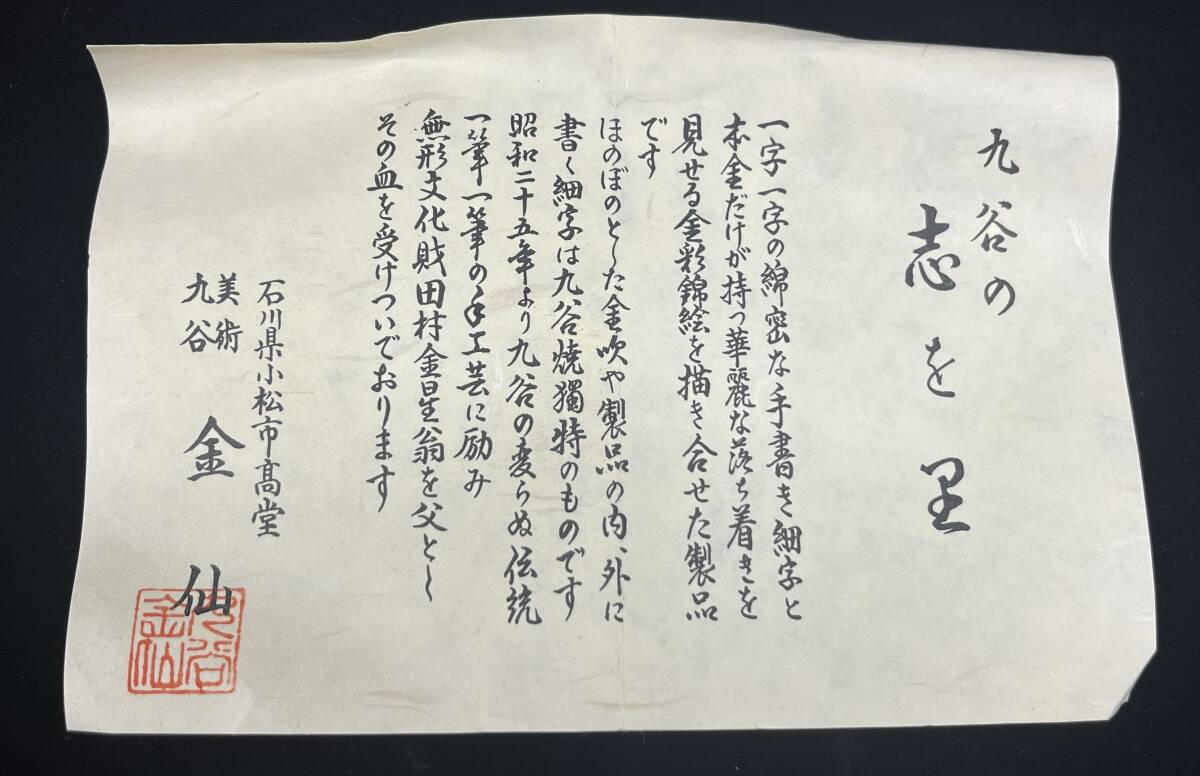 九谷の
志を里
一字一字の綿密な手書き細字と
本金だけが持つ華麗な落ち着きを
見せる金彩錦絵を描き合せた製品
です
ほのぼのとした金吹や製品の内、外に
書く細字は九谷焼獨特のものです
昭和二十五年より九谷の変らぬ伝統
一筆一筆の手工芸に励み
無形文化財田村金星翁を父とし
その血を受けついでおります
石川県小松市高堂
美術
九谷 金仙
九谷
金仙